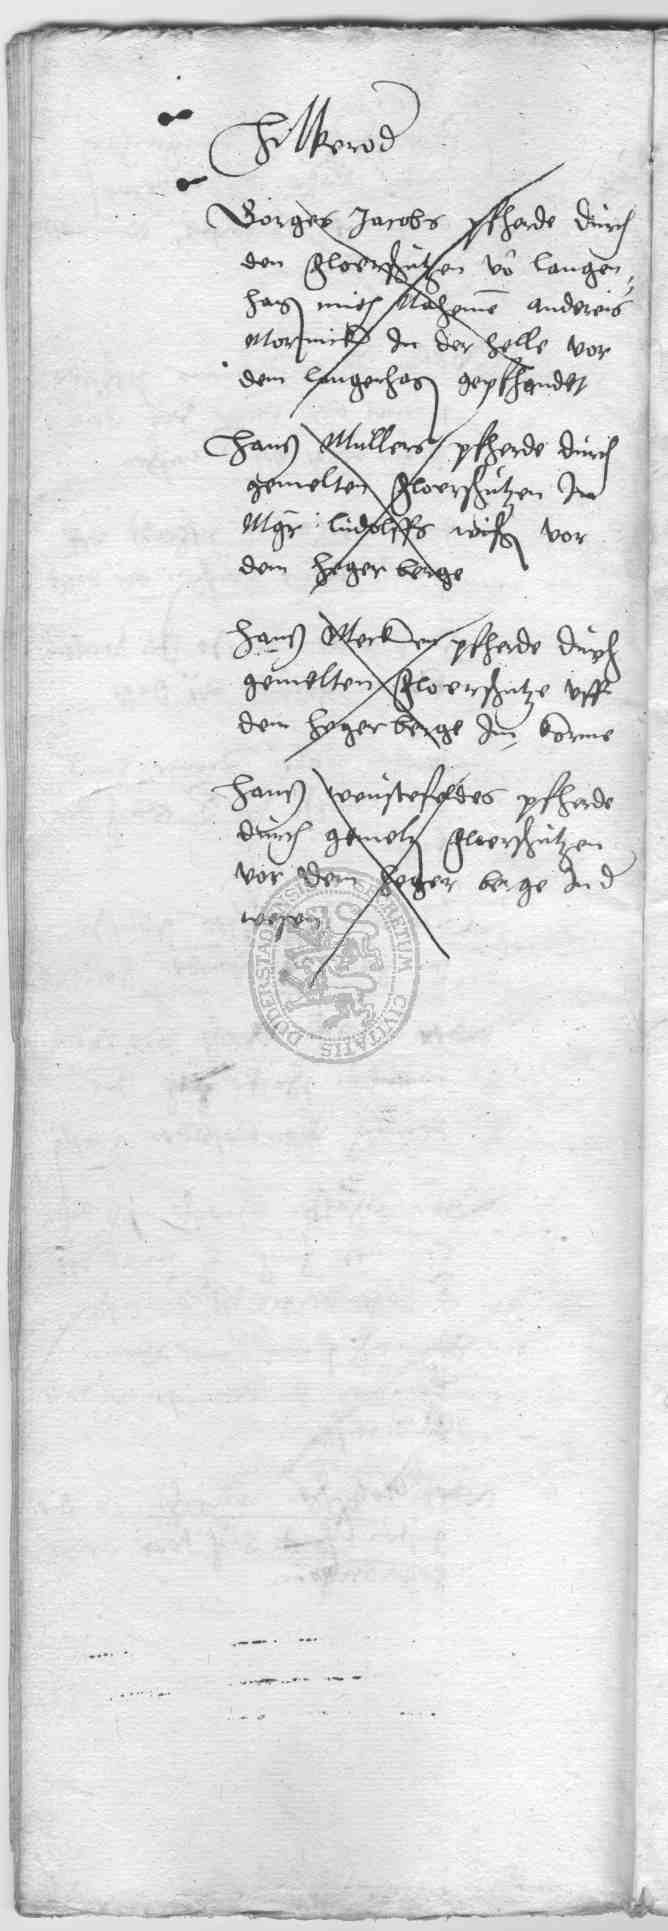 Hilkerod
Borges Jacobs pfherde durch
den floerschutzen vo langen
hag mith Nahemē andereis
Mornick In der helle vor
dem langenhag gepfhandet
Hans Mullers pfherde durch
gemelten floerschutzen In
Mgr ludolffs wisch vor
dem heger berge
Hans Mecken pfherde durch
gemelten floerschutze vff
dem heger berge Im korne
Hans wustefeldes pfherde
durch gemelt floerschutzen
vor dem heger berge In d
wesen
SECRETUM CIVITATIS DUDERSTADENSIS